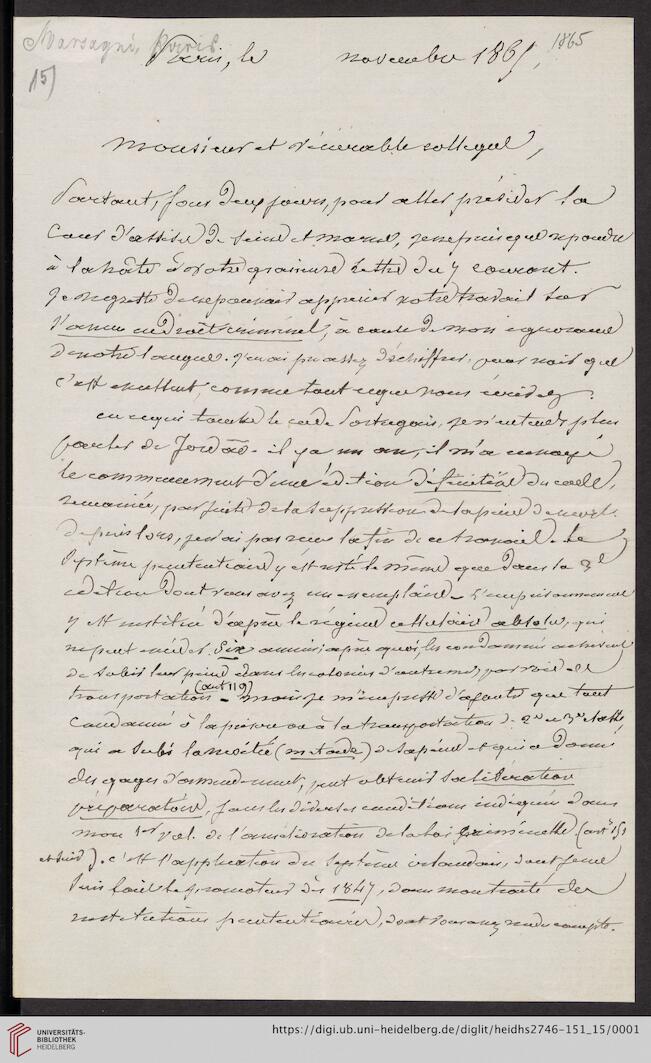 Paris, le novembre 1865, 1865
15)
Monsieur et vénérable collègue,
Partant, sous deux jours, pour aller présider la
Cour d'assises de Seine et Marne, je ne puis que répondre
à la hâte à votre gracieuse lettre du 7 courant.
Je regrette de ne pouvoir apprécier votre travail sur
en droit criminel, à cause de mon ignorance
de votre langue. J'en ai pu assez déchiffrer, pour voir que
c'est excellent, comme tout ce que vous écrivez.
en ce qui touche le code Portugais, je n'entends plus
parler de Jordaõ. il y a un an, il m'a envoyé
le commencement d'une édition définitive du code,
remaniée, par suite de la suppression de la peine de mort.
depuis lors, je n'ai pas reçu la fin de ce travail. Le
système pénitentiaire y est resté le même que dans la 2e
édition dont vous avez un exemplaire. L'emprisonnement
y est institué d'après le régime cellulaire absolu, qui
ne peut excéder six années, après quoi, les condamnés achèvent
de subir leur peine dans les colonies d'outremer, par voie de
transportation (art 119) - mais je m'empresse d'ajouter que tout
condamné à la prison ou à la transportation de 2e ou 3e classe,
qui a subi la moitié (metade) de sa peine et qui a donné
des gages d'amendement, peut obtenir sa libération
préparatoire, sous les diverses conditions indiquées dans
mon 1er vol. de l'amélioration de la loi criminelle (art 151
et suiv). c'est l'application du système irlandais, dont je me
suis fait le promoteur dès 1847, dans mon traité des
institutions pénitentiaires, dont vous avez rendu compte.
UNIVERSITÄTS-
BIBLIOTHEK
HEIDELBERG
https://digi.ub.uni-heidelberg.de/diglit/heidhs2746-151_15/0001